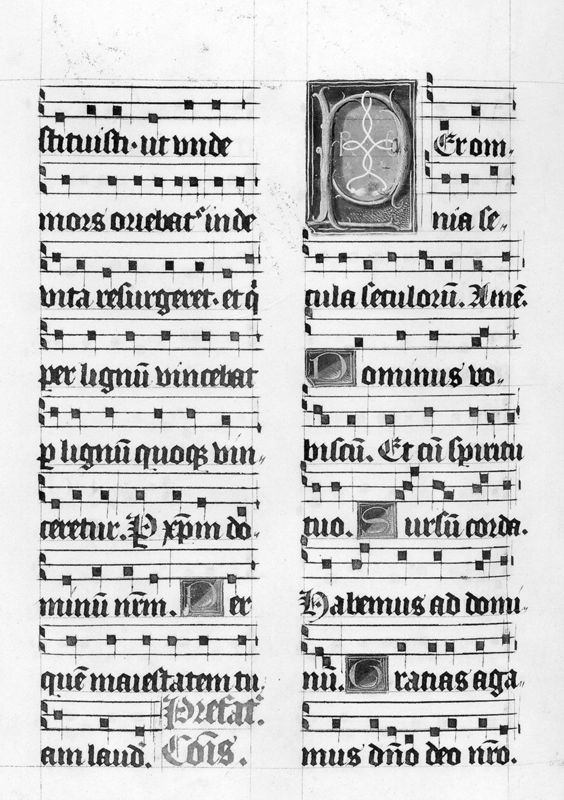 stituisti · ut unde
mors oriebat᷑ inde
vita resurgeret · et q̄
per lignū vincebat
p lignū quoqꝫ vin„
ceretur. P xp̄m do„
minū nrm̄. Per
quē maiestatem tu
am laud᷑. Prefat᷑.
Cōis.
Per om„
nia se„
cula seculorū. Amē.
Dominus vo„
biscū. Et cū spiritu
tuo. Sursū corda.
Habemus ad domi
nū. Gratias aga„
mus dn̄o deo nr̄o.